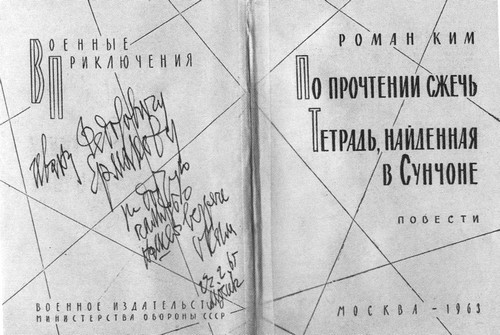 Военные
Приключения
Ивану Федоровичу
Ермакову
22.2.65
Военное издательство
Министерства обороны СССР
Роман Ким
По прочтении сжечь
Тетрадь, найденная
в Сунчоне
Повести
Москва – 1963